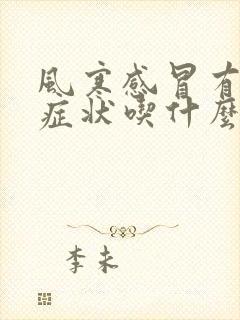 風寒感冒有
症状喫什麼
李未